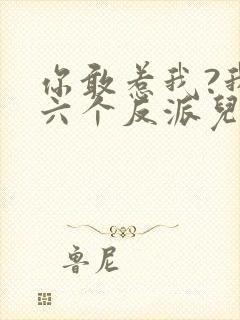 你敢惹我?我
六个反派兒
鲁尼